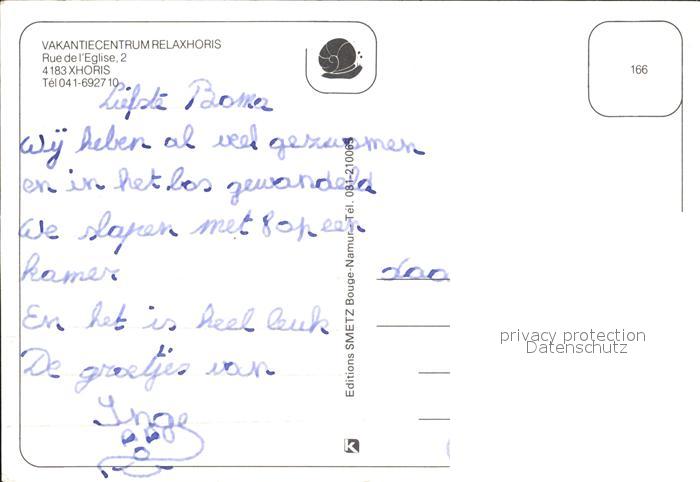 VAKANTIECENTRUM RELAXHORIS
Rue de l'Eglise, 2
4183 XHORIS
Tél 041-692710
166
Liefste Boma
Wij heben al veel gezwomen
en in het bos gewandeld
We slapen met 8 op een
kamer
En het is heel leuk
De groetjes van
Inge
Editions SMETZ Bouge-Namur - Tél. 081-210063
K
privacy protection
Datenschutz